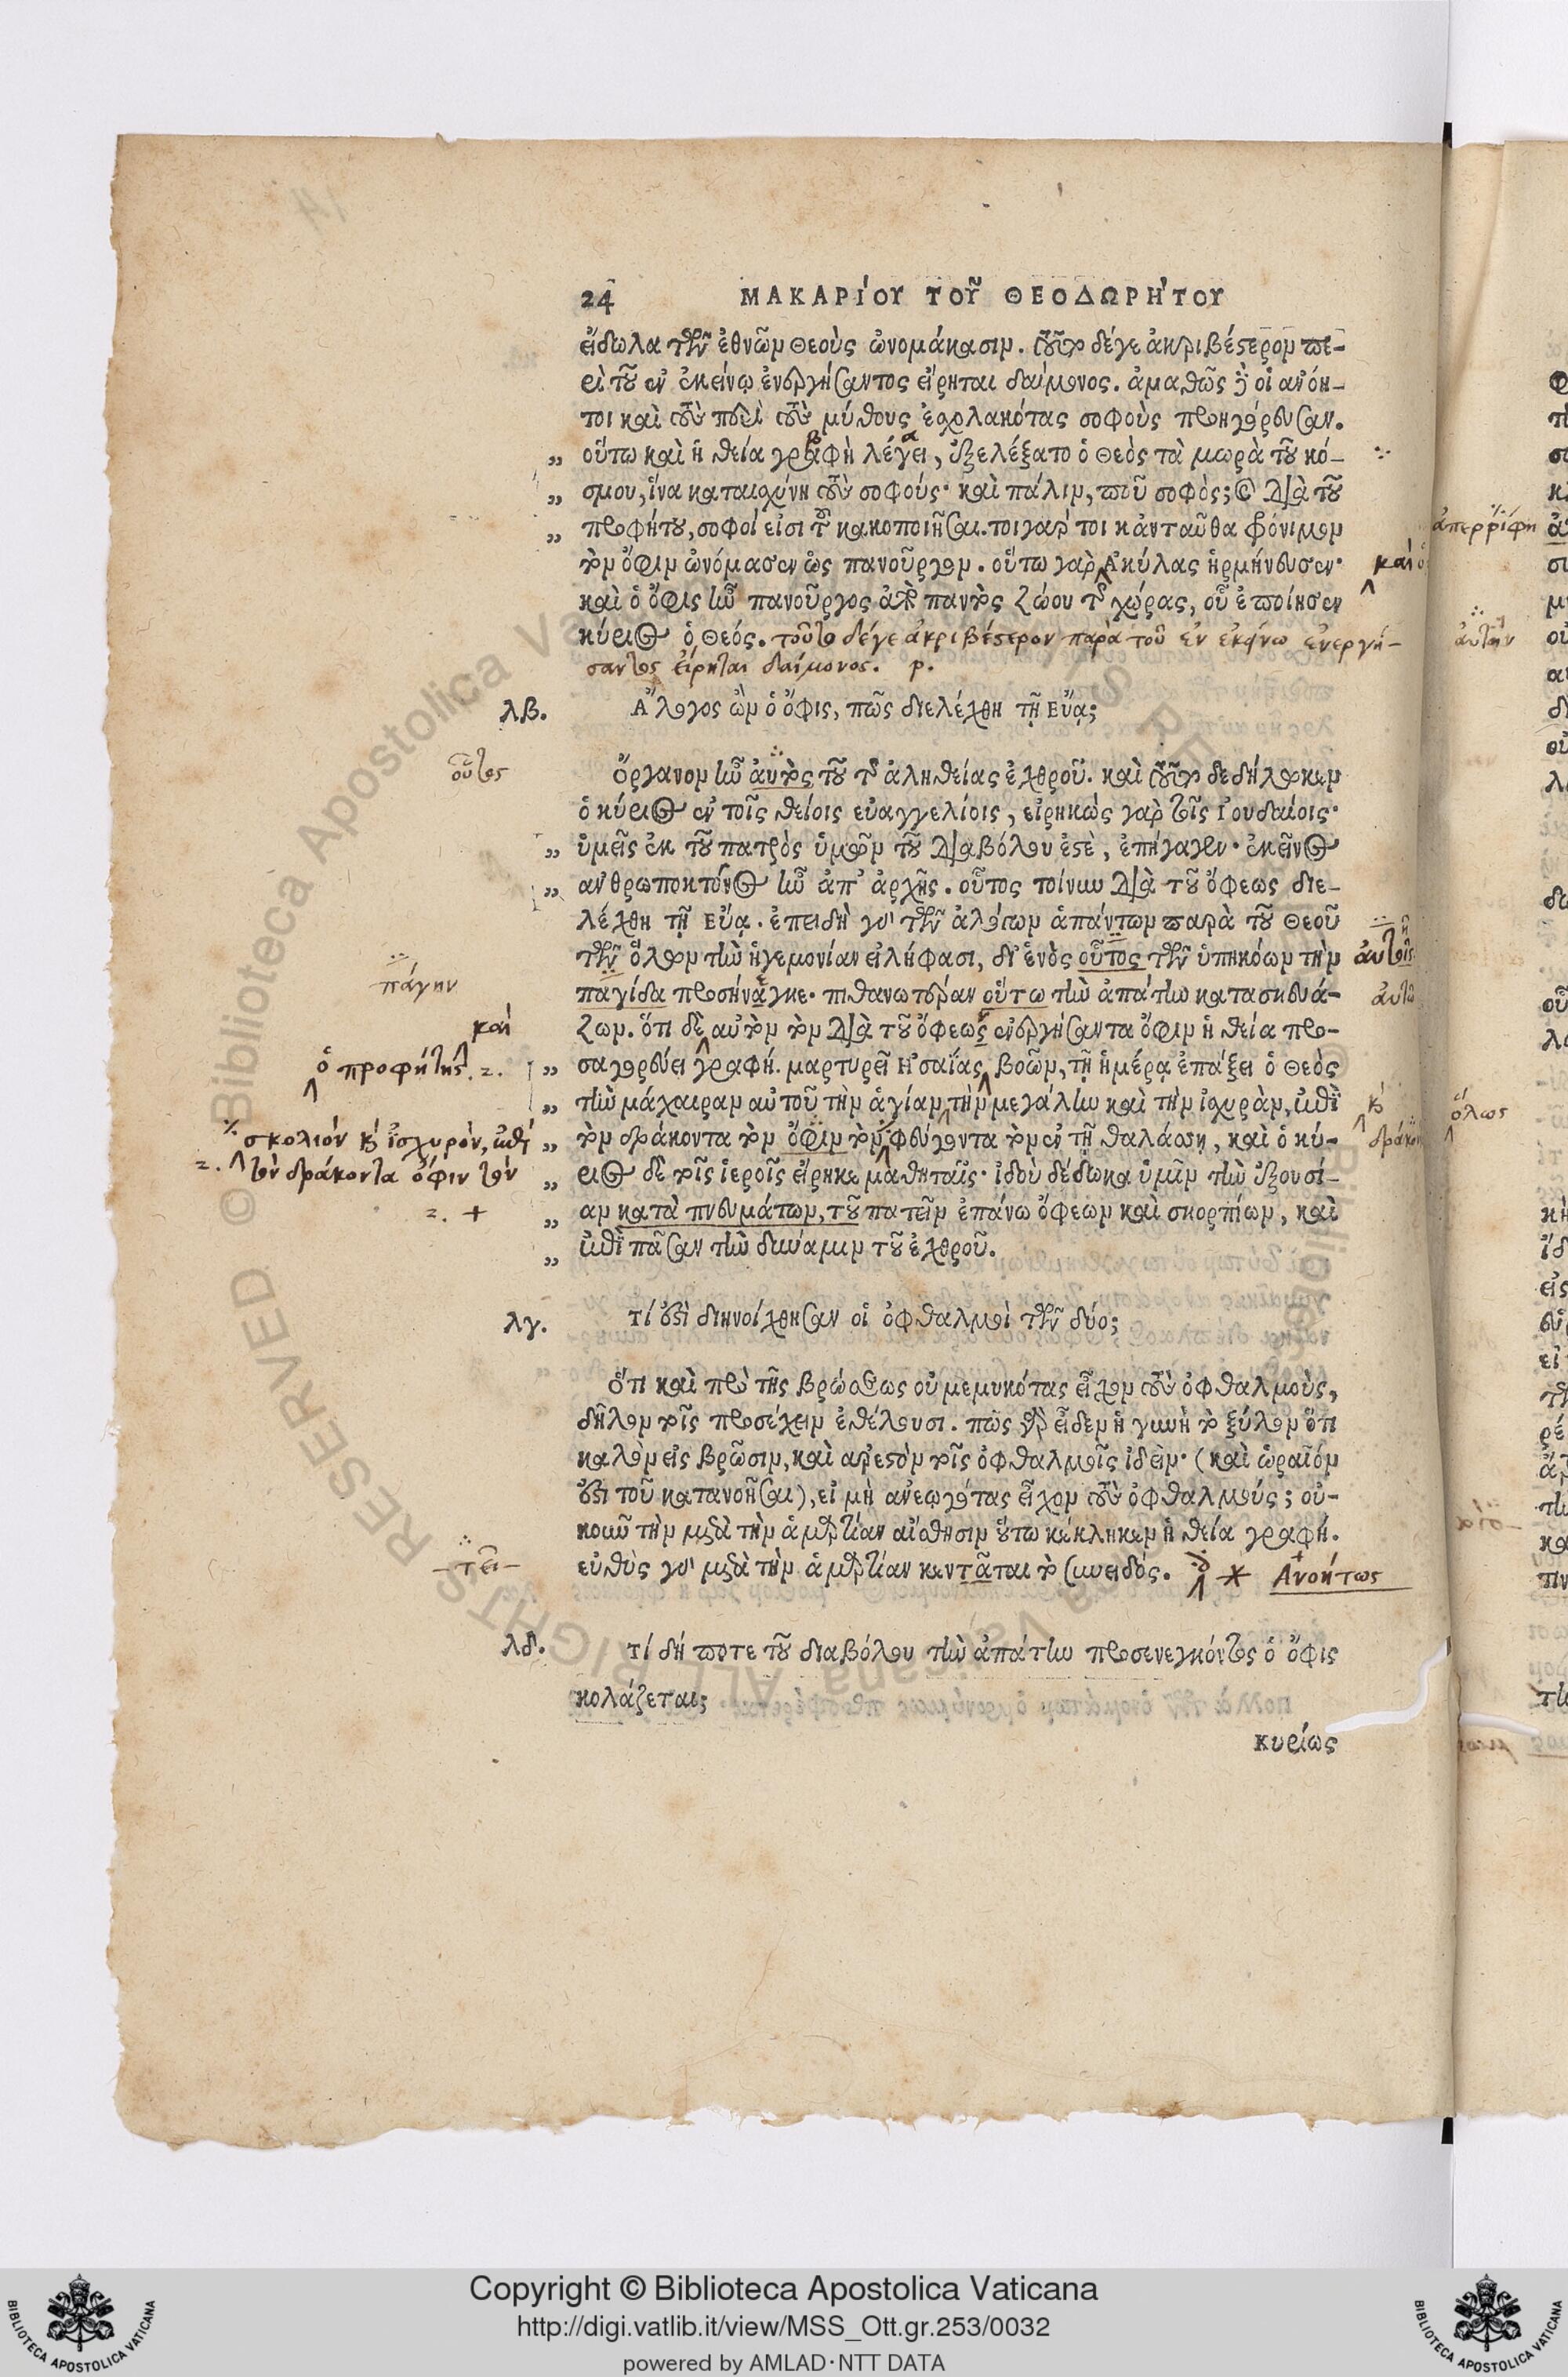 24 ΜΑΚΑΡΊΟΥ ΤΟΥ͂ ΘΕΟΔΩΡΉΤΟΥ
εἴδωλα τῶν ἐθνῶν Θεοὺς ὠνομάκασιν. τοῦτο δέγε ἀκριβέστερον πε-
ρὶ τοῦ ἐν ἐκείνῳ ἐνεργήσαντος εἴρηται δαίμονος. ἀμαθῶς γὰρ οἱ ἀνόη-
τοι καὶ τοὺς περὶ τοὺς μύθους ἐσχολακότας σοφοὺς προσηγόρευσαν.
„ οὕτω καὶ ἡ θεία γραφὴ λέγει, ἐξελέξατο ὁ Θεὸς τὰ μωρὰ τοῦ κό-
„ σμου, ἵνα καταισχύνη τοὺς σοφούς· καὶ πάλιν, ποῦ σοφὸς; καὶ διὰ τοῦ
„ προφήτου, σοφοί εἰσι τοῦ κακοποιῆσαι. τοιγάρ τοι κἀνταῦθα φρόνιμον
τὸν ὄφιν ὠνόμασεν ὡς πανοῦργον. οὕτω γὰρ Ἀκύλας ἡρμήνευσεν· καὶ ὁ
καὶ ὁ ὄφις ἦν πανοῦργος ἀπὸ παντὸς ζώου τῆς χώρας, οὗ ἐποίησεν
κύριος ὁ Θεός. τοῦτο δέγε ἀκριβέστερον παρὰ τοῦ ἐν ἐκείνω ἐνεργή-
σαντος εἴρηται δαίμονος. ρ.
λβ. Ἄλογος ὢν ὁ ὄφις, πῶς διελέχθη τῇ Εὔᾳ;
οὗτος
Ὄργανον ἦν αὐτὸς τοῦ τῆς ἀληθείας ἐχθροῦ. καὶ τοῦτο δεδήλωκεν
ὁ κύριος ἐν τοῖς θείοις εὐαγγελίοις, εἰρηκὼς γὰρ τοῖς Ἰουδαίοις·
„ ὑμεῖς ἐκ τοῦ πατρὸς ὑμῶν τοῦ διαβόλου ἐστὲ, ἐπήγαγεν· ἐκεῖνος
„ ἀνθρωποκτόνος ἦν ἀπ’ ἀρχῆς. οὗτος τοίνυν διὰ τοῦ ὄφεως διε-
λέχθη τῇ Εὔᾳ. ἐπειδὴ γὰρ τῶν ἀλόγων ἁπάντων παρὰ τοῦ Θεοῦ
τῶν ὅλων τὴν ἡγεμονίαν εἰλήφασι, δι’ ἑνὸς οὗτος τῶν ὑπηκόων τὴν αὐτοῖς
πάγην
παγίδα προσήνεγκε. πιθανωτέραν οὕτω τὴν ἀπάτην κατασκευά-
καὶ
ζων. ὅτι δὲ αὐτὸν τὸν διὰ τοῦ ὄφεως ἐνεργήσαντα ὄφιν ἡ θεία προ-
ὁ προφήτης. 2.
„ σαγορεύει γραφή. μαρτυρεῖ Ἡσαΐας βοῶν, τῇ ἡμέρᾳ ἐπάξει ὁ Θεὸς
„ τὴν μάχαιραν αὐτοῦ τὴν ἁγίαν, τὴν μεγάλην καὶ τὴν ἰσχυρὰν, ἐπὶ
σκολιόν καὶ ἰσχυρὸν, ἐπὶ
„ τὸν δράκοντα τὸν ὄφιν τὸν φεύγοντα τὸν ἐν τῇ θαλάσσῃ, καὶ ὁ κύ-
2. τὸν δράκοντα ὄφιν τὸν
„ ριος δὲ τοῖς ἱεροῖς εἴρηκε μαθηταῖς· ἰδοὺ δέδωκα ὑμῖν τὴν ἐξουσί-
2. +
„ αν κατὰ πνευμάτων, τοῦ πατεῖν ἐπάνω ὄφεων καὶ σκορπίων, καὶ
„ ἐπὶ πᾶσαν τὴν δύναμιν τοῦ ἐχθροῦ.
λγ. Τί ἐστὶ διηνοίχθησαν οἱ ὀφθαλμοὶ τῶν δύο;
Ὅτι καὶ πρὸ τῆς βρώσεως οὐ μεμυκότας εἶχον τοὺς ὀφθαλμοὺς,
δῆλον τοῖς προσέχειν ἐθέλουσι. πῶς γὰρ εἶδεν ἡ γυνὴ τὸ ξύλον ὅτι
καλὸν εἰς βρῶσιν, καὶ ἀρεστὸν τοῖς ὀφθαλμοῖς ἰδεῖν· (καὶ ὡραῖόν
ἐστι τοῦ κατανοῆσαι), εἰ μὴ ἀνεῳγότας εἶχον τοὺς ὀφθαλμούς; οὐ-
κοῦν τὴν μετὰ τὴν ἁμαρτίαν αἴσθησιν οὕτω κέκληκεν ἡ θεία γραφή.
-τεῖ-
εὐθὺς γὰρ μετὰ τὴν ἁμαρτίαν κεντᾶται τὸ συνειδός. Ἀνοήτως
λδ. Τί δή ποτε τοῦ διαβόλου τὴν ἀπάτην προσενεγκόντος ὁ ὄφις
κολάζεται;
κυρίως
ἀπερρίφη
αὐτὴν
ὅλως
Copyright © Biblioteca Apostolica Vaticana
http://digi.vatlib.it/view/MSS_Ott.gr.253/0032
powered by AMLAD·NTT DATA
BIBLIOTECA APOSTOLICA VATICANA
BIBLIOTECA APOSTOLICA VATICANA